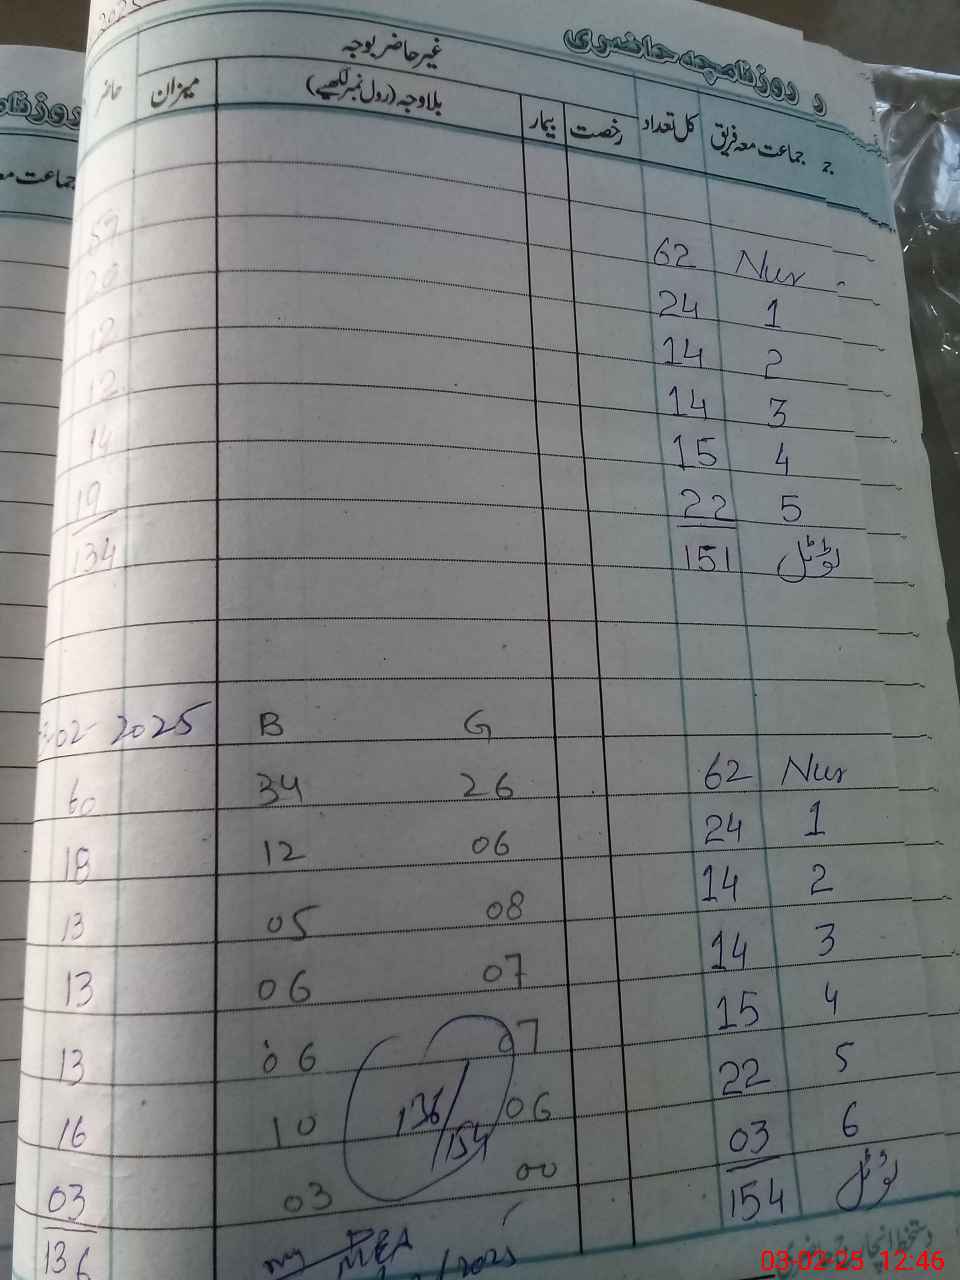 روزنامچہ حاضری
جماعت معہ فریق کل تعداد غیر حاضر بوجہ میزان حاضر
رخصت بیمار بلاوجہ (رول نمبر لکھیے)
Nur 62 59
1 24 20
2 14 12
3 14 12
4 15 14
5 22 19
ٹوٹل 151 134
02-2025 B G
Nur 62 26 34 60
1 24 06 12 18
2 14 08 05 13
3 14 07 06 13
4 15 07 06 13
5 22 06 10 16
6 03 00 03 03
ٹوٹل 154 136
136/154
MEA
/2025
03-02-25 12:46